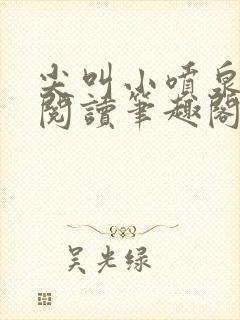 尖叫小噴泉
閱讀筆趣閣
吴光绿